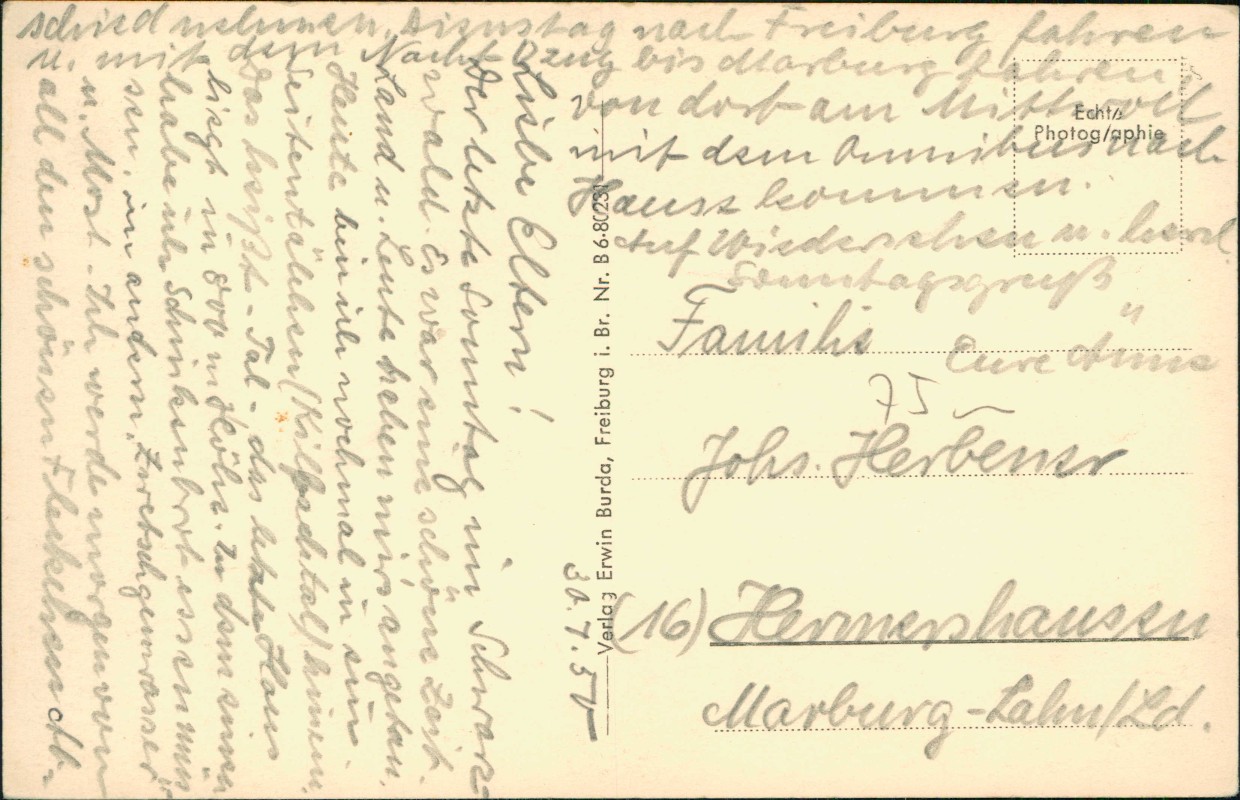 30.7.50
Liebe Eltern!
Der letzte Sonntag im Schwarz-
wald. Es war eine schöne Zeit.
Land u. Leute haben mir's angetan.
Heute bin ich nochmal in ein
Seitentälchen (Kilpachtal) hinein.
Das heißt - Tal - das letzte Haus
liegt in 800 m Höhe. In dem einen
habe ich Schinkenbrot essen müs-
sen, im andern, Zwetschgenwasser
u. Most. Ich werde morgen von
all den schönen Fleckchen Ab-
schied nehmen, Dienstag nach Freiburg fahren
u. mit dem Nacht-Dzug bis Marburg fahren,
von dort am Mittwoch
mit dem Omnibus nach
Hause kommen.
Auf Wiedersehen u. herzl.
Sonntagsgruß
Eure Änne
Verlag Erwin Burda, Freiburg i. Br. Nr. B 6-80231
Echte
Photographie
Familie
75
Johs. Herbener
(16) Hermershausen
Marburg-Lahn/Ld.